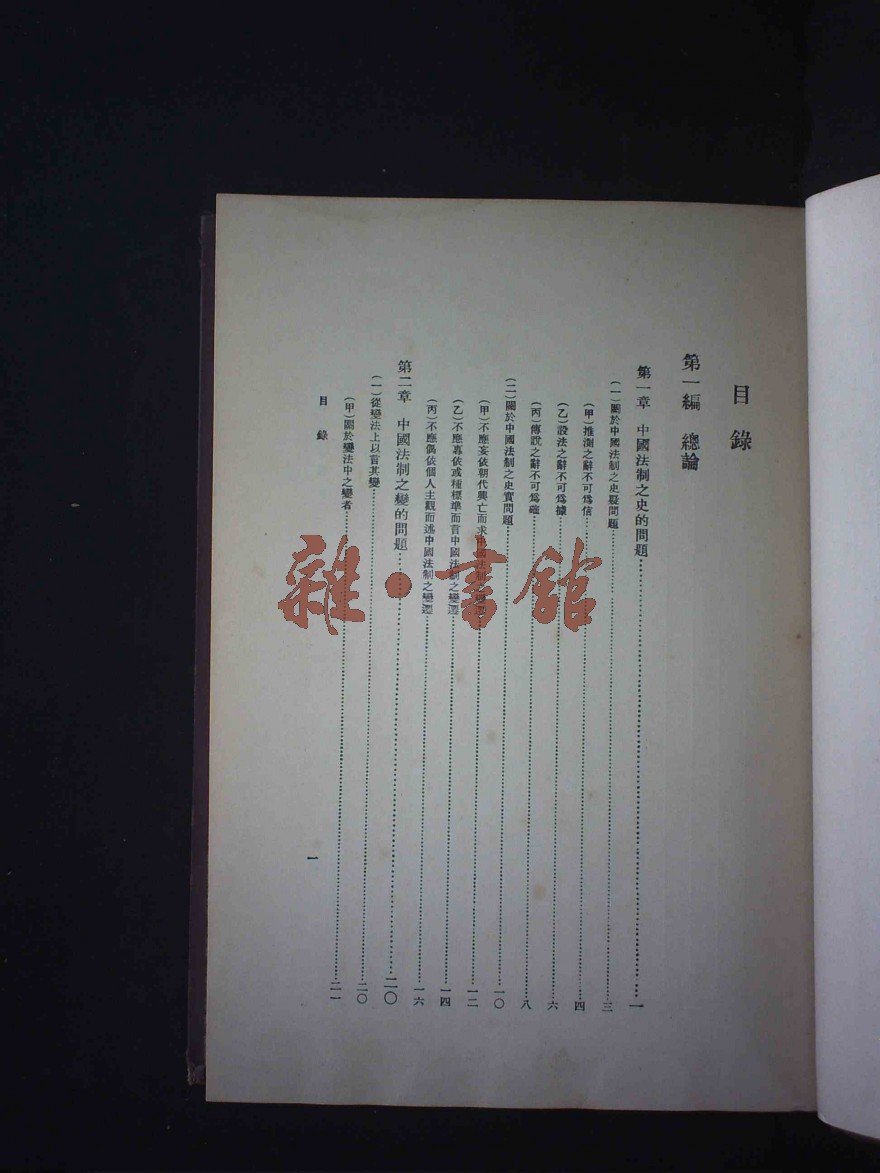 目錄
第一編 總論
第一章 中國法制之史的問題……一
(一)關於中國法制之史疑問題……三
(甲)推測之辭不可為信……四
(乙)設法之辭不可為據……六
(丙)傳說之辭不可為確……八
(二)關於中國法制之史實問題……一〇
(甲)不應妄依朝代興亡而求中國法制之變遷……一二
(乙)不應專依或種標準而言中國法制之變遷……一四
(丙)不應偶依個人主觀而述中國法制之變遷……一六
第二章 中國法制之變的問題……二〇
(一)從變法上以言其變……二〇
(甲)關於變法中之變者……二一
目錄
一
雜·書館